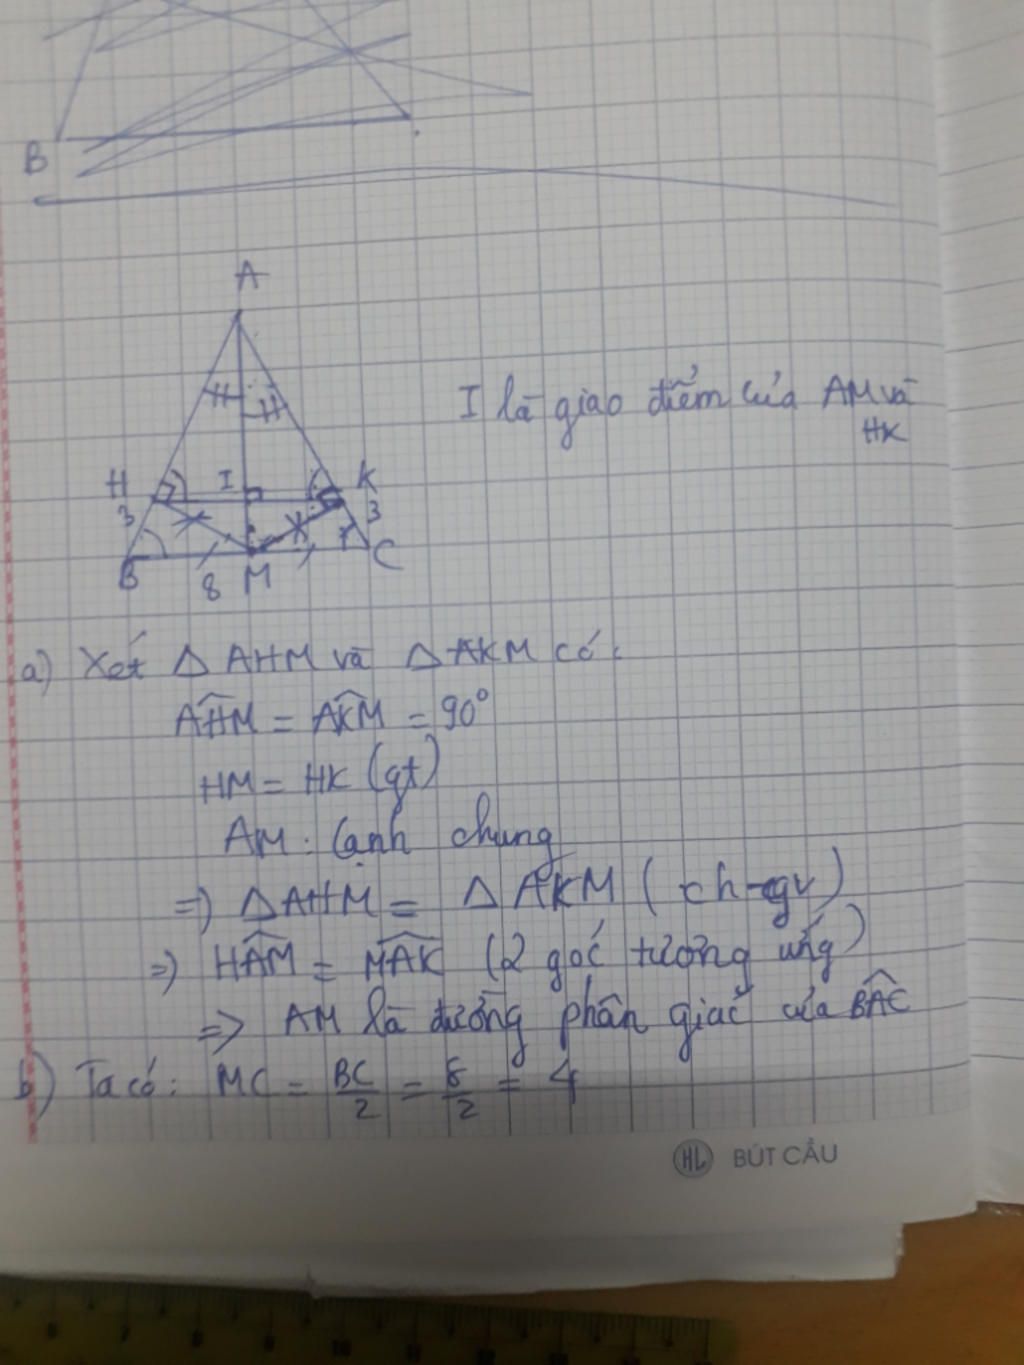 B
A
I là giao điểm của AM và
HK
H I K
3 3
B 8 M C
a) Xét Δ AHM và Δ AKM có:
AHM = AKM = 90°
HM = HK (gt)
AM: Cạnh chung
=) Δ AHM = Δ AKM ( ch-gv)
=) HAM = MAK (2 góc tương ứng)
=> AM là đường phân giác của BAC
b) Ta có: MC = BC/2 = 8/2 = 4
HL BÚT CẦU